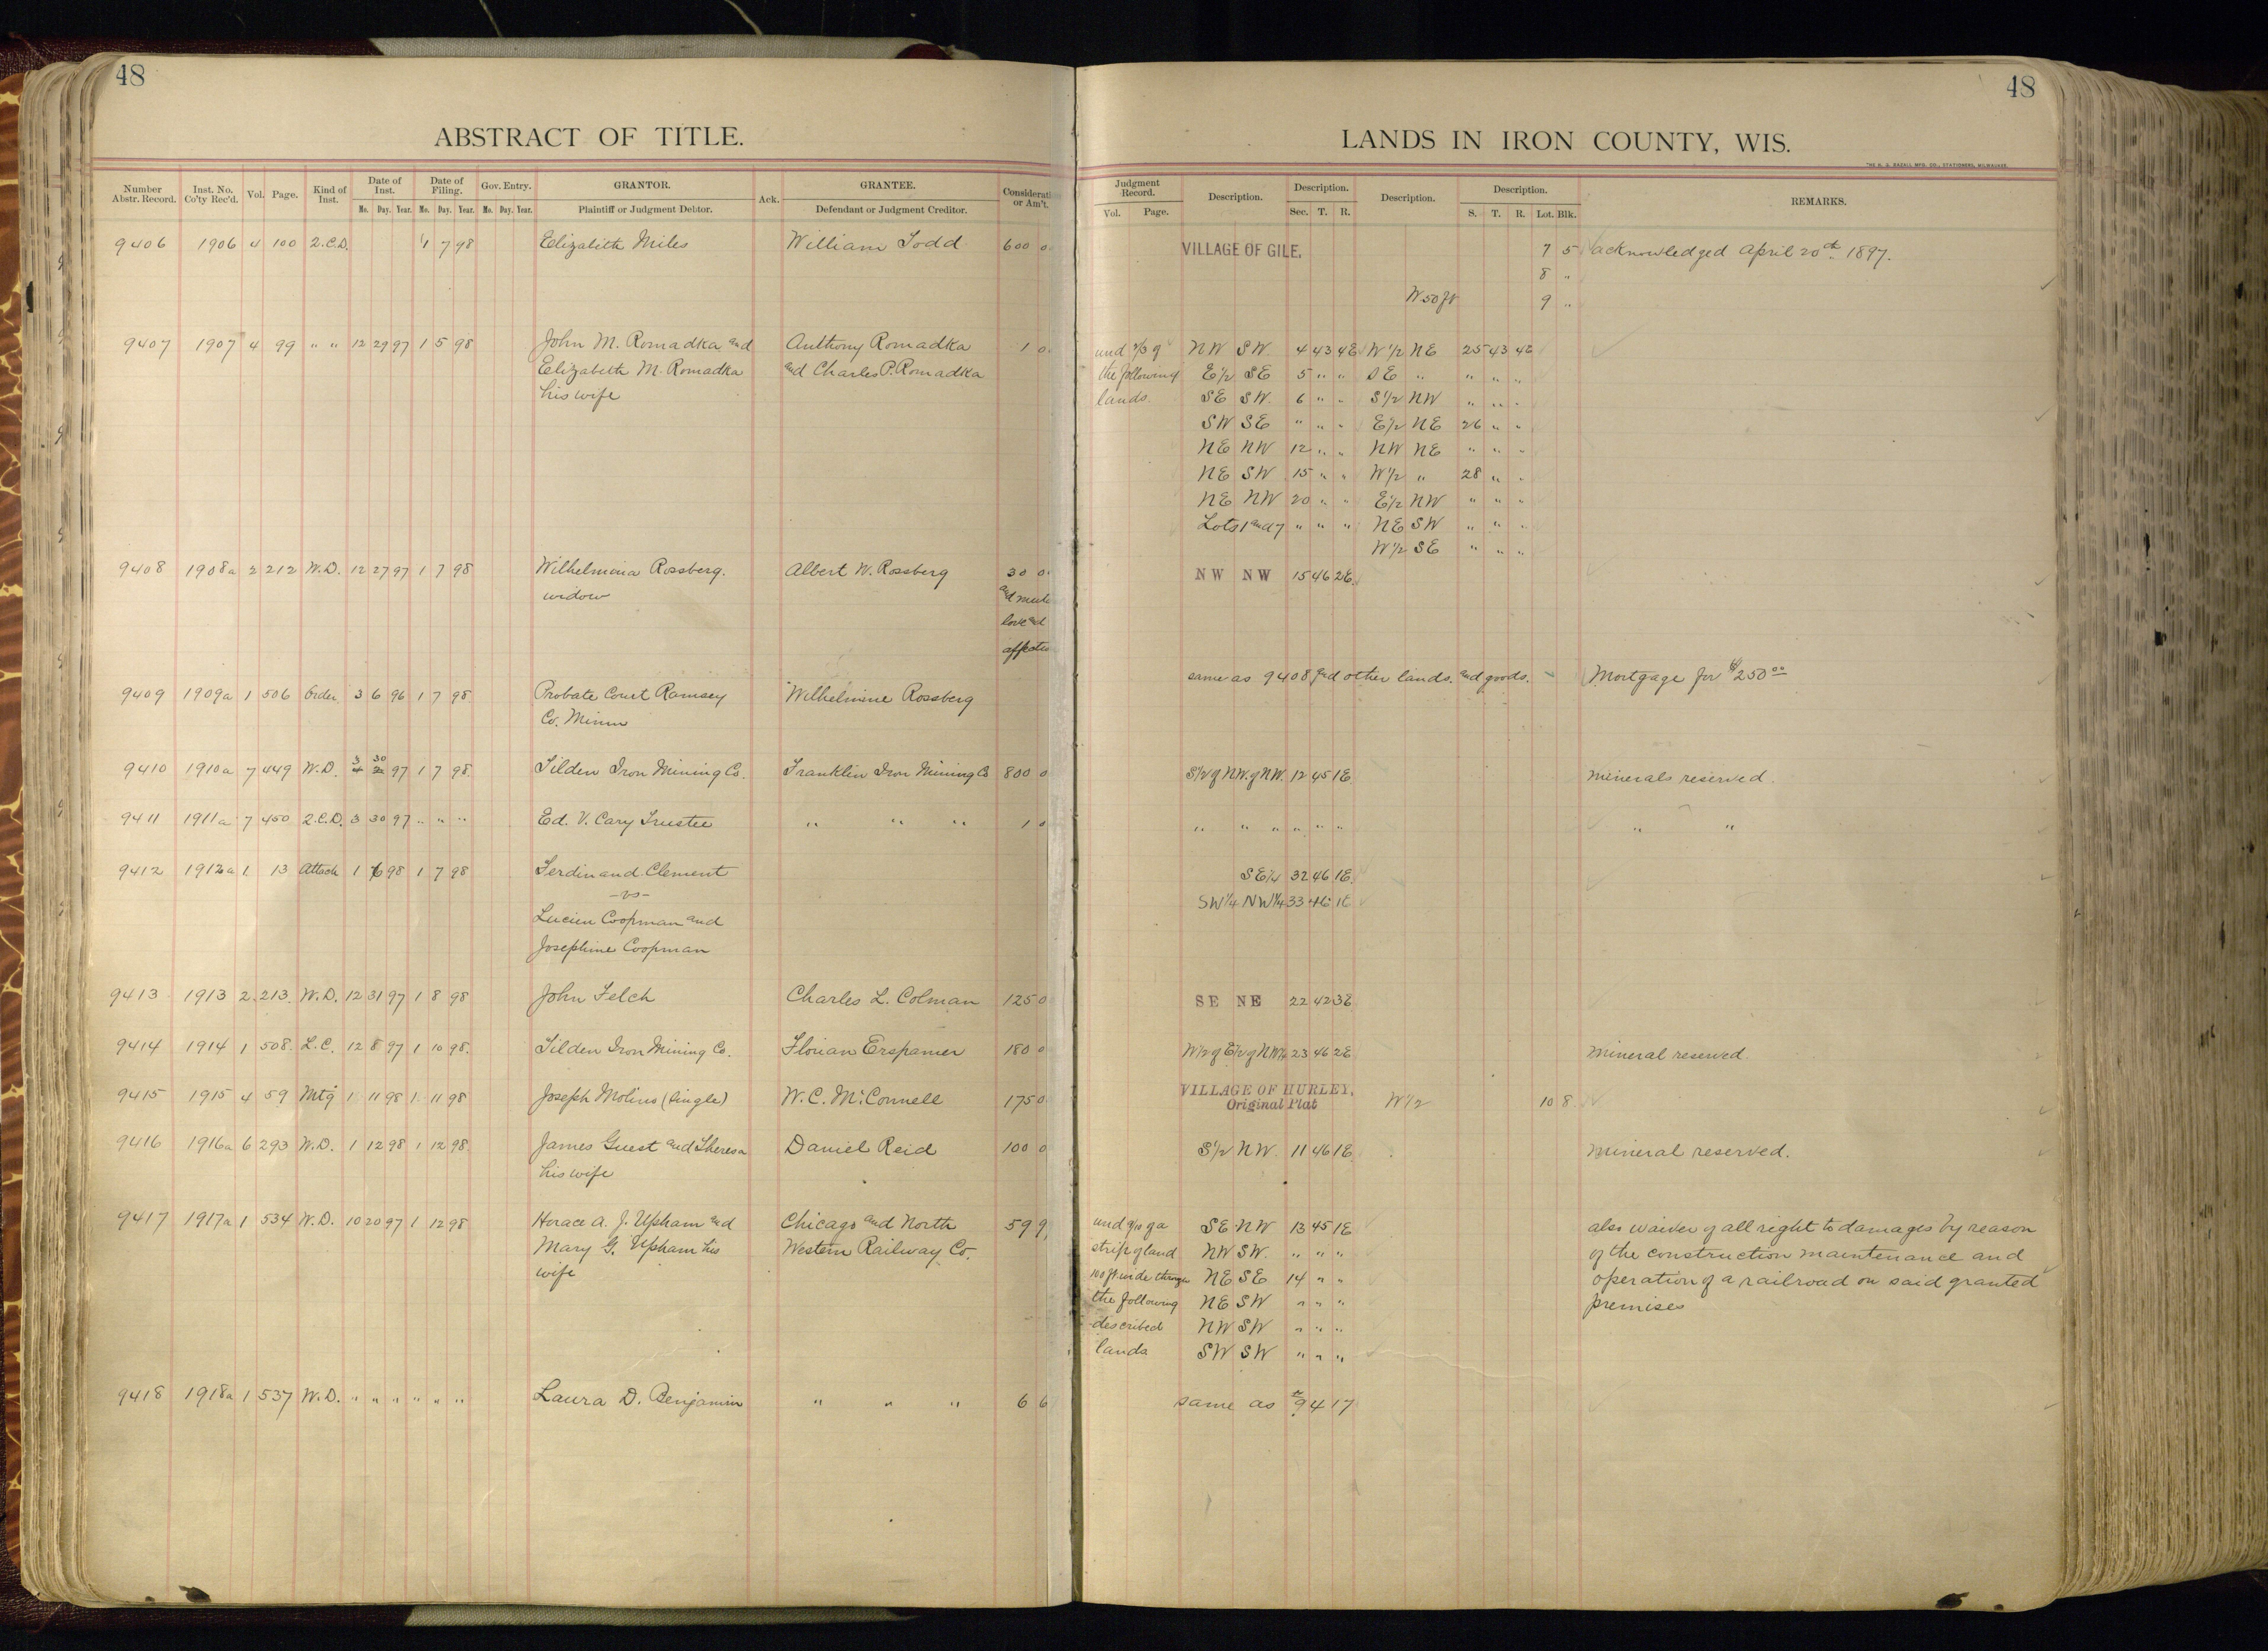 48
ABSTRACT OF TITLE.
Number Abstr. Record. Inst. No. Co'ty Rec'd. Vol. Page. Kind of Inst. Date of Inst. Mo. Day. Year. Date of Filing. Mo. Day. Year. Gov. Entry. Mo. Day. Year. GRANTOR. Plaintiff or Judgment Debtor. Ack. GRANTEE. Defendant or Judgment Creditor. Considerati or Am't.
9406 1906 4 100 2.C.D. 1 7 98 Elizabeth Miles William Todd 600 0
9407 1907 4 99 " " 12 29 97 1 5 98 John M. Romadka and Anthony Romadka 1 0
Elizabeth M. Romadka and Charles P. Romadka
his wife
9408 1908a 2 212 W.D. 12 27 97 1 7 98 Wilhelmina Rossberg. Albert W. Rossberg 30 0
widow and
love and
affectio
9409 1909a 1 506 Order 3 6 96 1 7 98 Probate Court Ramsey Wilhelmine Rossberg
Co. Minn
9410 1910a 7 449 W.D. 3 30 97 1 7 98 Tilden Iron Mining Co. Franklin Iron Mining Co 800 0
9411 1911a 7 450 2.C.D. 3 30 97 " " " Ed. V. Cary Trustee " " " 1 0
9412 1912a 1 13 Attach 1 6 98 1 7 98 Ferdinand Clement
-vs-
Lucien Coopman and
Josephine Coopman
9413 1913 2 213 W.D. 12 31 97 1 8 98 John Felch Charles L. Colman 125 0
9414 1914 1 508 L.C. 12 8 97 1 10 98 Tilden Iron Mining Co. Florian Erspamer 180 0
9415 1915 4 59 Mtg 1 11 98 1 11 98 Joseph Molino (Single) W.C. McConnell 175 0
9416 1916a 6 293 W.D. 1 12 98 1 12 98 James Guest and Theresa Daniel Reid 100 0
his wife
9417 1917a 1 534 W.D. 10 20 97 1 12 98 Horace A. J. Upham and Chicago and North 59 9
Mary G. Upham his Western Railway Co.
wife
9418 1918a 1 537 W.D. " " " " " " Laura D. Benjamin " " " 6 6
48
LANDS IN IRON COUNTY, WIS.
Judgment Record. Vol. Page. Description. Description. Sec. T. R. Description. Description. S. T. R. Lot. Blk. REMARKS.
VILLAGE OF GILE. 7 5 acknowledged April 20th 1897.
8 "
W 50 ft 9 "
und 2/3 of NW SW 4 43 4E W 1/2 NE 25 43 4E
the following E 1/2 SE 5 " " SE " " " "
lands. SE SW 6 " " S 1/2 NW " " "
SW SE " " " E 1/2 NE 26 " "
NE NW 12 " " NW NE " " "
NE SW 15 " " W 1/2 " 28 " "
NE NW 20 " " E 1/2 NW " " "
Lots 1 and 7 " " " NE SW " " "
W 1/2 SE " " "
NW NW 15 46 2E
same as 9408 and other lands. and goods. Mortgage for $250 00
S 1/2 of NW. of NW. 12 45 1E minerals reserved.
" " " " " " " "
SE 1/4 32 46 1E
SW 1/4 NW 1/4 33 46 1E
SE NE 22 42 3E
W 1/2 of E 1/2 of NW 1/4 23 46 2E mineral reserved
VILLAGE OF HURLEY,
Original Plat W 1/2 10 8
S 1/2 NW. 11 46 1E mineral reserved.
und 9/10 of a SE NW 13 45 1E also waiver of all right to damages by reason
strip of land NW SW. " " " of the construction maintenance and
100 ft. wide through NE SE 14 " " operation of a railroad on said granted
the following NE SW " " " premises
described NW SW " " "
lands SW SW " " "
same as 9417